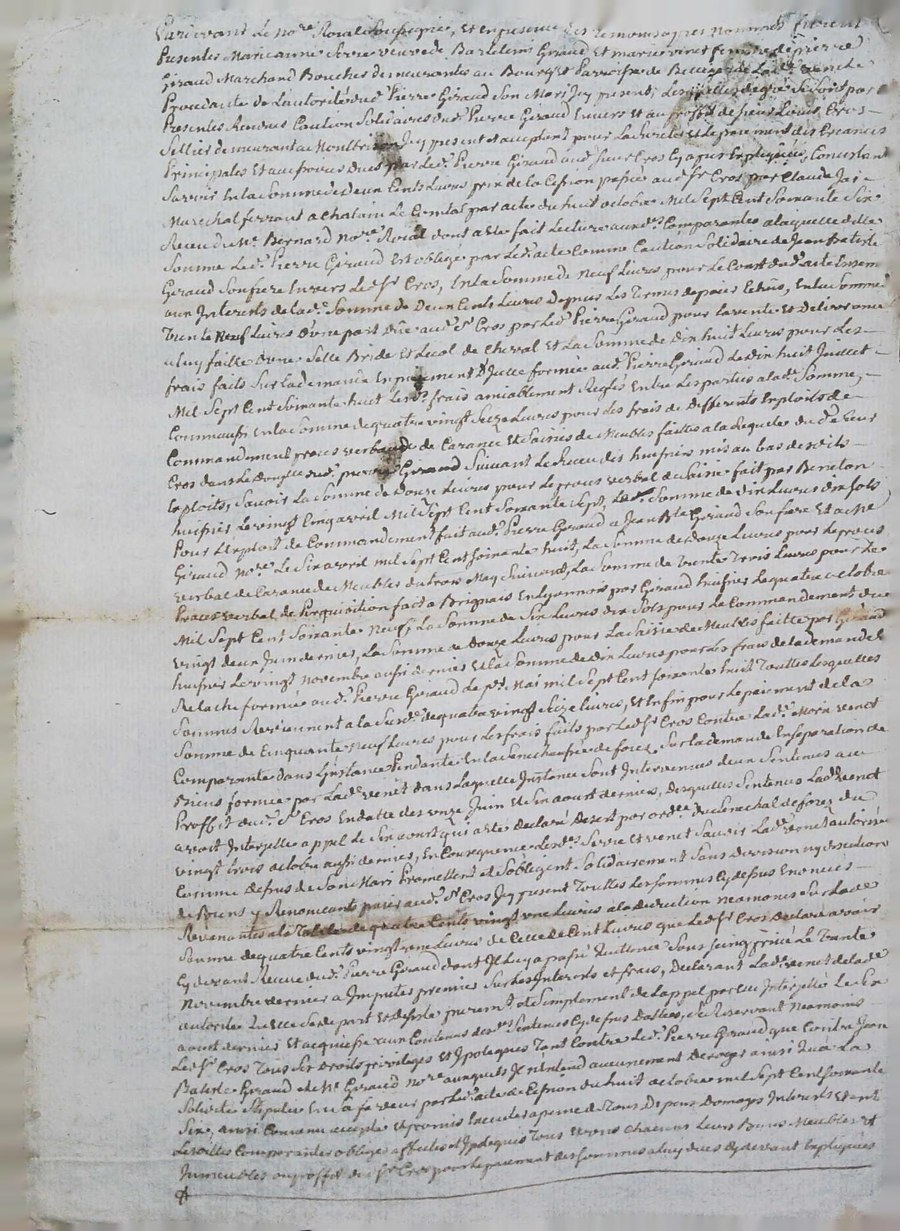 Pardevant Le No.re Roial Soussigné, et en presence des temoins apres nommés furent
Presentes Marieanne Serre veuve de Bartelemi Giraud et marie vinet femme de pierre
Giraud Marchand Boucher demeurantes au Bourg et Parroisse de Lad.e
Procedante de L'autorité dud. Pierre Giraud Son Mari Icy present; Lesquelles de gré Se Sont par
Presentes Rendues Caution Solidaires dud. Pierre Giraud Envers et au proffit de Sieur Louis Cros
Sellier demeurant au Montbrison Icy present et acceptant pour La Sureté et le paiement des Creances
Principales et aux frais dues par led. Pierre Giraud aud. Sieur Cros Cy apres Expliquées, Consistant
Savoir En La Somme de Deux Cents Livres prix de la Cession passée aud. Sr Cros par Claude
Marechal ferrant a Chalain Le Comtal par acte du huit octobre Mil Sept Cent Soixante Six
Receu Me Bernard No.re Roial dont a Eté fait Lecture auxd. Comparantes a laquelle ditte
Somme Led. Pierre Giraud Est obligé par Led. acte Comme Caution Solidaire de Jean Batiste
Giraud Son frere Envers Led. Sr Cros, En la Somme de Neuf Livres pour Le Cout dud. acte Ensem
aux Interets de lad. Somme de Deux Cents Livres Depuis Les termes de paier Echus, En la Somme
Trente Neuf Livres D'une part Düe aud. Sr Cros par Led. Pierre Giraud pour La vente et Delivrance
a luy faitte D'une Selle Bride et Licol de Cheval et La Somme de dix huit Livres pour Les
frais faits Sur La demande En paiement D'Icelle formée aud. Pierre Giraud Le dix huit Juillet
Mil Sept Cent Soixante huit Lesd. frais amiablement Reglés Entre Les parties a lad. Somme,
Comm'aussi En la Somme de quatre vingt Seize Livres pour Les frais de Differents Exploits de
Commandement proces verbaux de Carance et Saisies de Meubles faittes a la Requete du d. Sieur
Cros dans Le Domicille dud. pierre Giraud Suivant Le Receu des huissiers mis au bas desdits
Exploits, Savoir La Somme de Douze Livres pour Le proces verbal de Saisie fait par Beneton
huissier Le vingt Cinq avril Mil Sept Cent Soixante Sept, La Somme de dix Livres dix Sols
Pour L'exploit de Commandement fait aud. Pierre Giraud a Jean Bte Giraud Son frere Et a Me
Giraud No.re Le Six avril mil Sept Cent Soixante huit, La Somme de douze Livres pour Le proces
verbal de Carance de Meubles du trois May Suivant, La Somme de Trente Trois Livres pour Le
Proces verbal de Perquisition fait a Brignais En Lyonnois par Giraud huissier Le quatre octobre
Mil Sept Cent Soixante Neuf, La Somme de Six Livres dix Sols pour Le Commandement du
vingt deux Juin dernier, La Somme de Douze Livres pour La Saisie de Meubles faitte par Giraud
huissier Le vingt Novembre aussi dernier et La Somme de dix Livres pour Les frais de la demande En
Relache formée aud. Pierre Giraud Le Mai mil Sept Cent Soixante huit Touttes Lesquelles
Sommes Reviennent a la Susd. de quatre vingt Seize Livres, et Enfin pour Le paiement de la
Somme de Cinquante Neuf Livres pour Les frais faits par Led. Sr Cros Contre Lad. Marie venet
Comparante dans L'instance Pendante En la Senechaussée de forez, Sur La demande En Separation de
Biens formée par Lad. venet dans Laquelle Instance Sont Intervenues deux Sentences au
Proffit du d. Sr Cros En datte des onze Juin et Six aoust derniers, Desquelles Sentences Lad. venet
avoit Interjetté appel Le Six aoust qui a Eté Declaré Desert par ord.ce du Senechal de forez du
vingt trois octobre aussi dernier, En Consequence Lesd. Serre et venet Savoir Lad. venet autorisée
Comme dessus de Son Mari Promettent et S'obligent Solidairement Sans Division ny discution
de Biens y Renoncants paier aud. Sr Cros Icy present Touttes Les Sommes Cy dessus Enoncées
Revenantes a la Totale de quatre Cents vingt une Livres a la deduction Neamoins Sur Lade
Somme de quatre Cents vingt une Livres de Celle de Cent Livres que Led. Sr Cros Declare avoir
Cy devant Receue dud. Pierre Giraud dont Il Luy a passé quittance Sous Seing privé Le Trente
Novembre dernier a Imputer premier Sur Les Interets et frais, Declarant Lad. venet de lade
autorité Qu'elle Se depart et desiste purement et Simplement de L'appel par Elle Interjetté Le Six
aoust dernier et acquiesse aux Contenus desd. Sentences Cy dessus Dattées, Se Reservant Neamoins
Led. Sr Cros Tous Ses Droits privileges et Ipoteques Tant Contre Led. Pierre Giraud que Contre Jean
Batiste Giraud et Me Giraud No.re auxquels Il N'entend aucunement deroger ainsi Qu'a La
Solidité Stipulée En Sa faveur par Led. acte de Cession du huit octobre mil Sept Cent Soixante
Six, ainsi Convenu accepté et promis Executer a peine de Tous Depens Domages Interets et ont
Lesdittes Comparantes obligé affecté et Ipotequé Tous et uns Chacuns Leurs Biens Meubles et
Immeubles au proffit du Sr Cros pour Le paiement des Sommes a luy dues Cy devant Expliquées